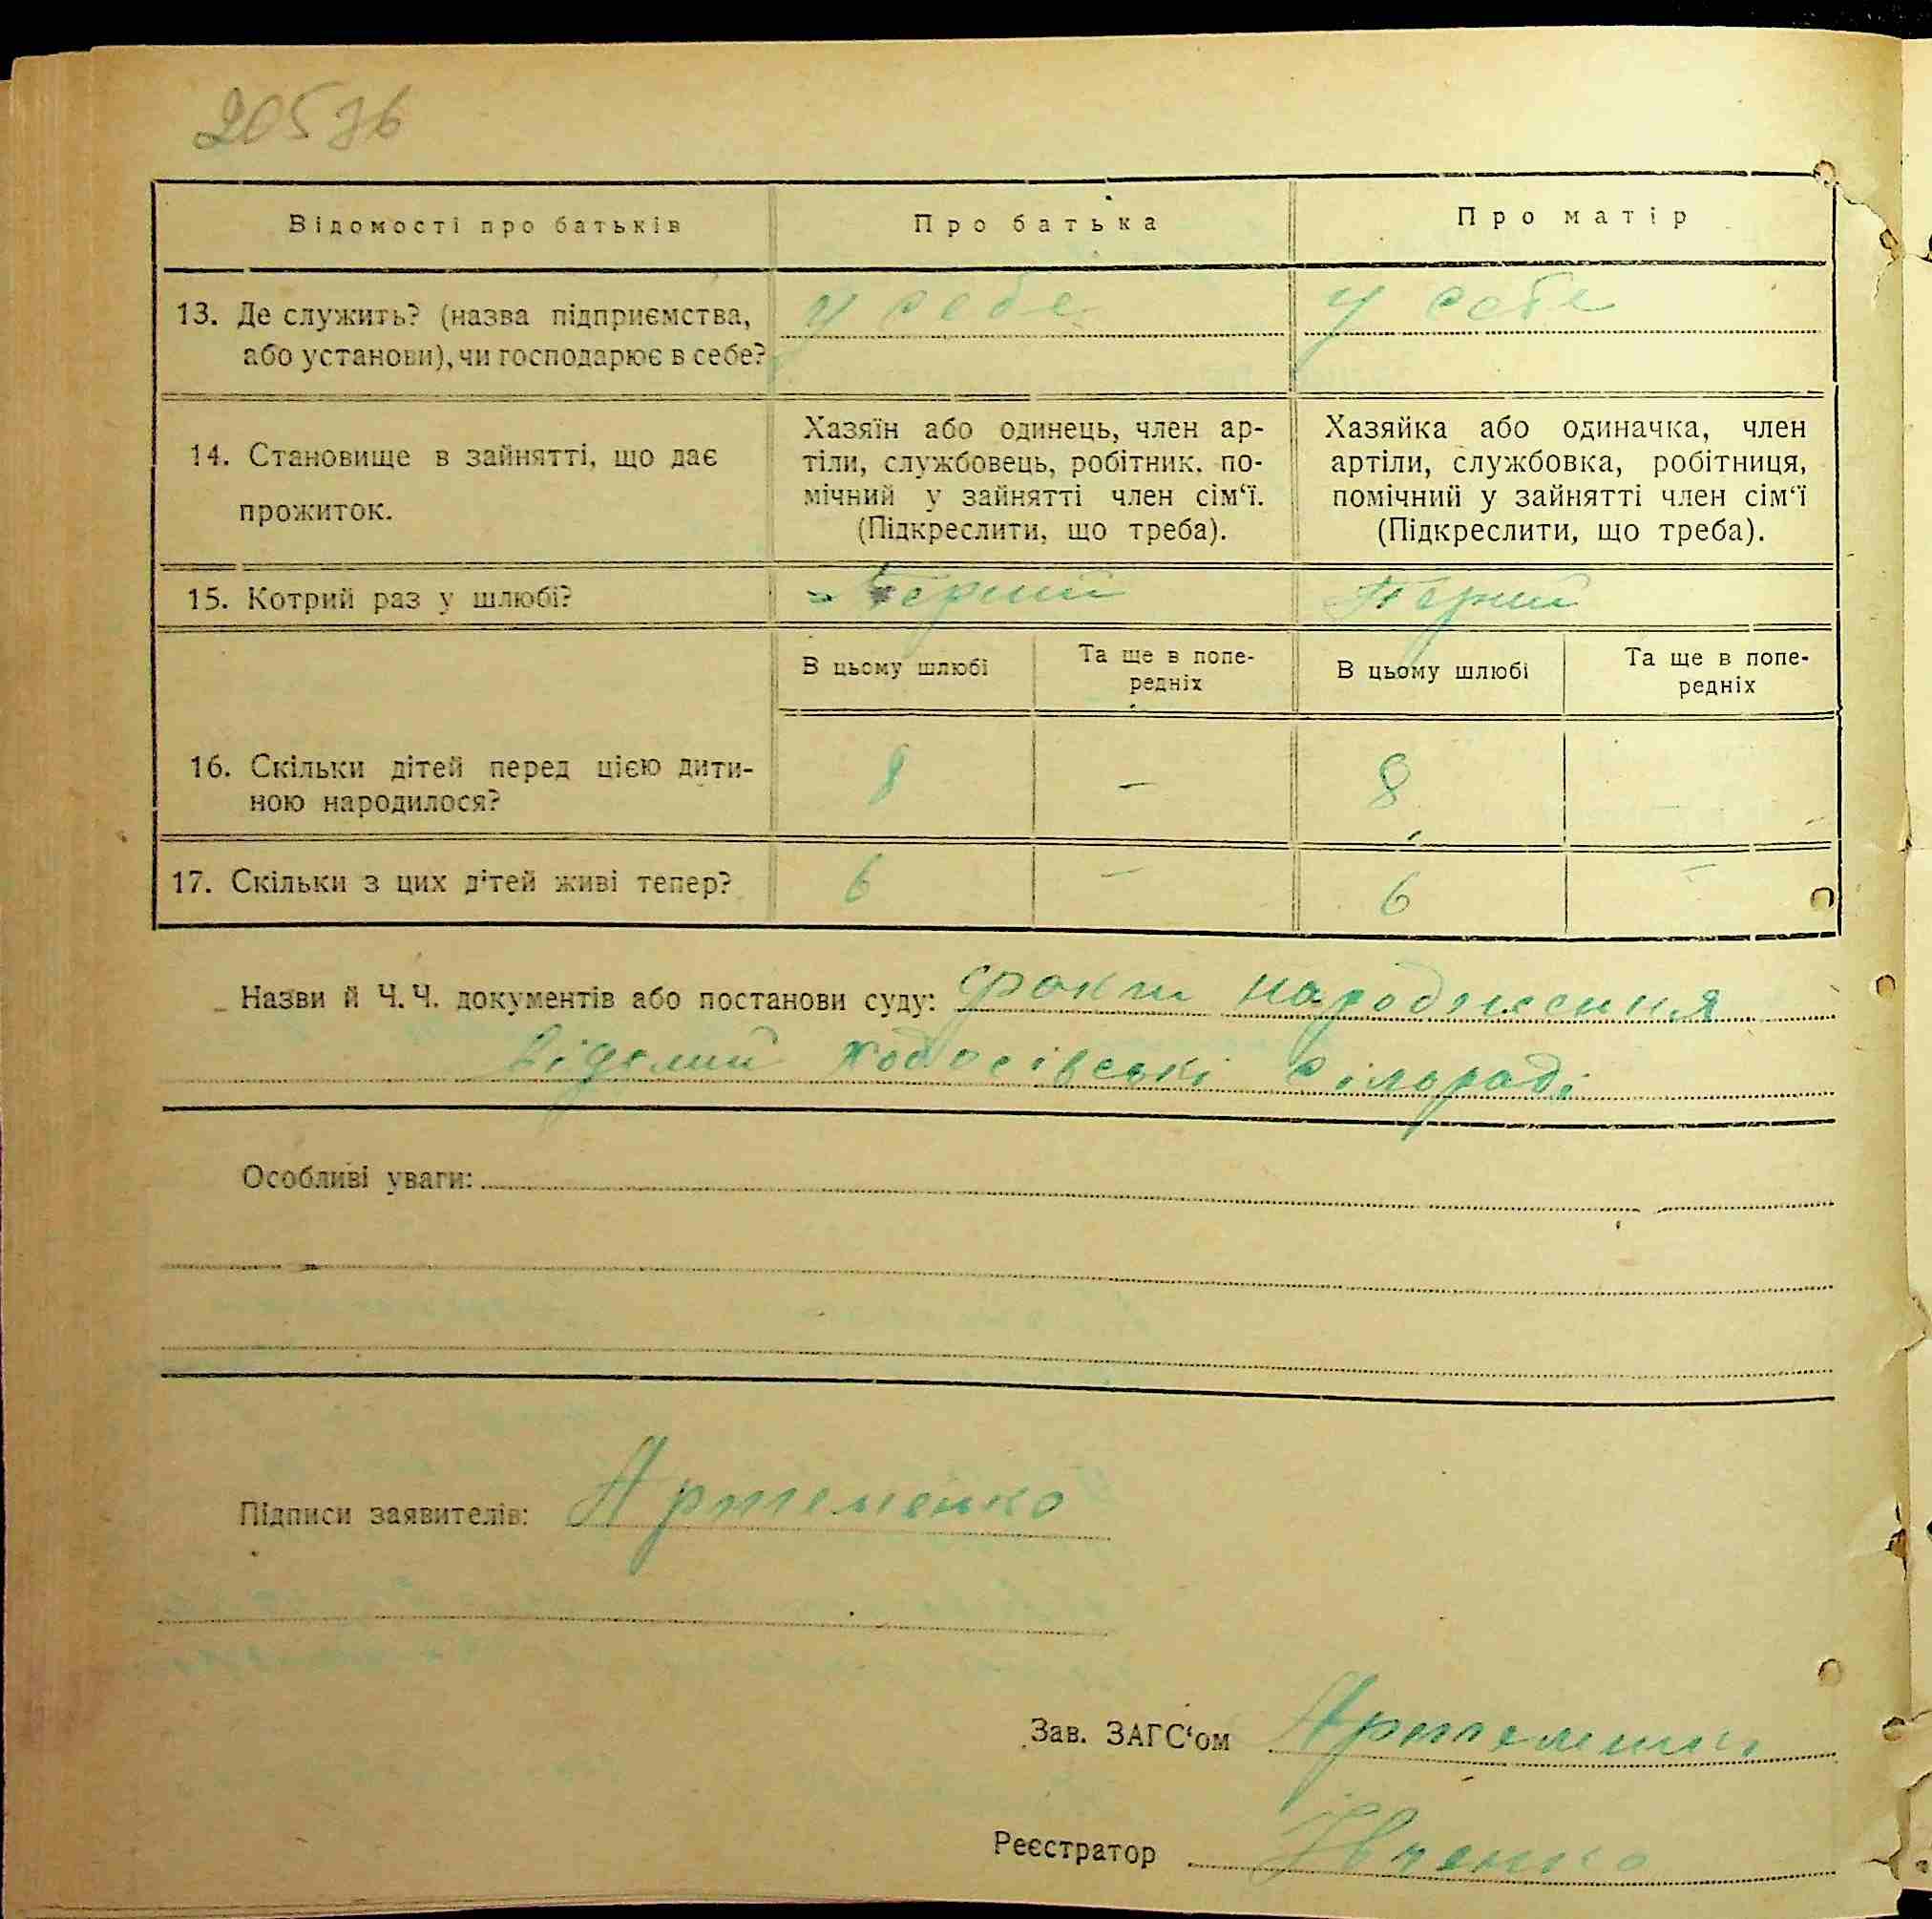 20576
Відомості про батьків
Про батька
Про матір
13. Де служить? (назва підприємства,
або установи), чи господарює в себе?
у себе
у себе
14. Становище в зайнятті, що дає
прожиток.
Хазяїн або одинець, член ар-
тіли, службовець, робітник, по-
мічний у зайнятті член сім‘ї.
(Підкреслити, що треба).
Хазяйка або одиначка, член
артіли, службовка, робітниця,
помічний у зайнятті член сім‘ї
(Підкреслити, що треба).
15. Котрий раз у шлюбі?
Перший
Перший
В цьому шлюбі
Та ще в попе-
редніх
В цьому шлюбі
Та ще в попе-
редніх
16. Скільки дітей перед цією дити-
ною народилося?
8
–
8
17. Скільки з цих дітей живі тепер?
6
–
6
–
Назви й Ч. Ч. документів або постанови суду: факт народження
відомий Ходосівскі сілораді
Особливі уваги:
Підписи заявителів: Артеменко
Зав. ЗАГС‘ом
Реєстратор Івченко